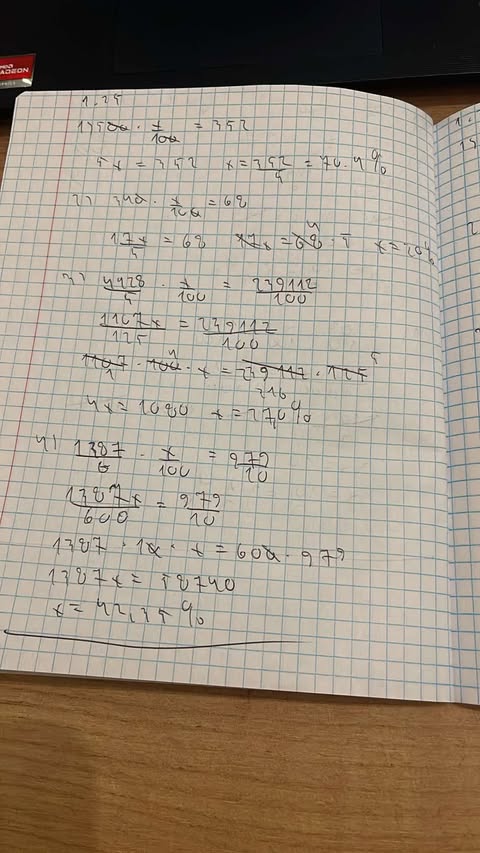 RADEON
1.25
1) 500 · x/100 = 352
5x = 352 x = 352/5 = 70.4%
2) 340 · x/100 = 68
17x/5 = 68 17x = 68 · 5 x = 20%
4
3) 4428/5 · x/100 = 239112/100
1107x/125 = 239112/100
1107 · 100 · x = 239112 · 125
1 4 216 5
4x = 1080 x = 270%
4) 1387/6 · x/100 = 979/10
1387x/600 = 979/10
1387 · 10 · x = 600 · 979
1387x = 58740
x = 42,35%
1.
15
2